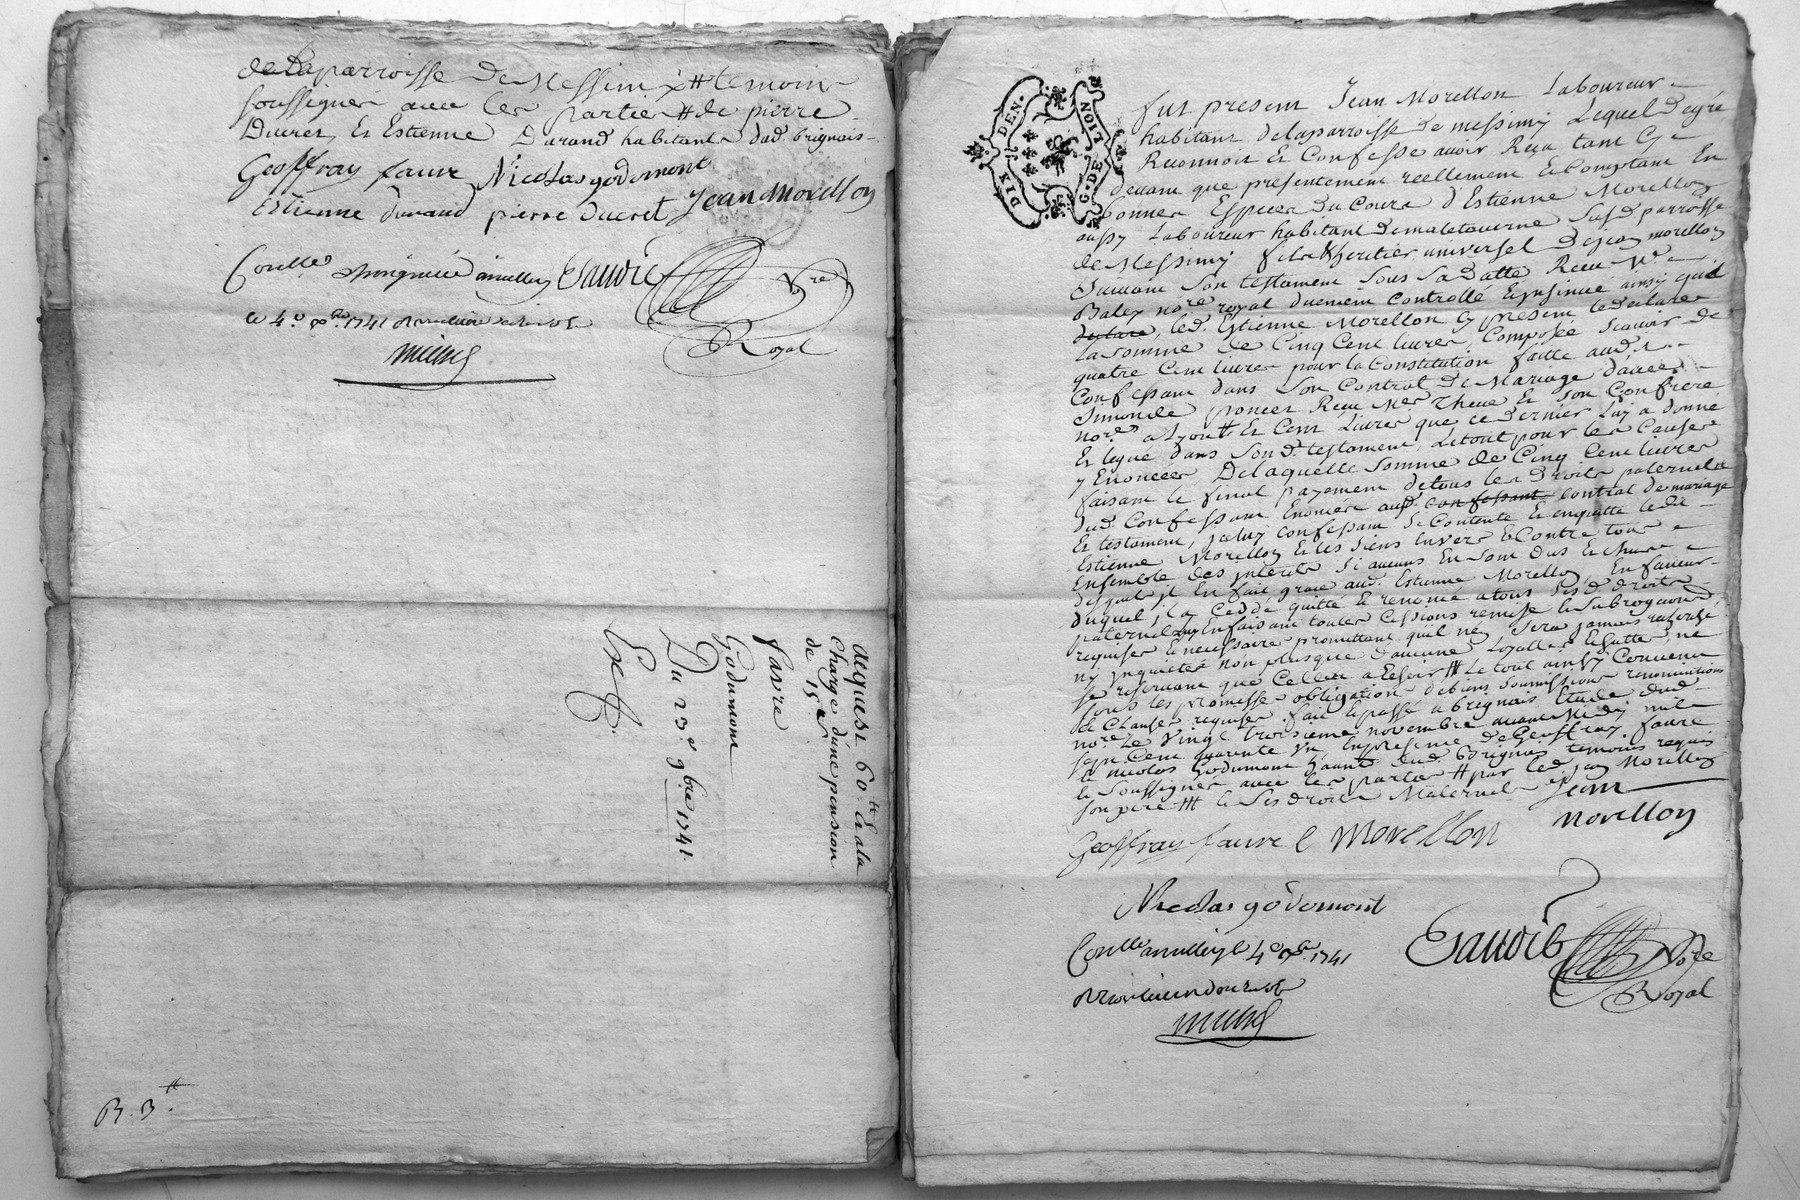 delaparroisse de Messimy # temoin
soussignes avec les parties # de pierre
Ducret Et Estienne Durand habitants dud. brignais
Geoffray faure Nicolas godemont
Estienne durand pierre ducret Jean Morellon
Conlle
Gaudie Nre
Royal
le 4e xbre 1741
R. 3tt
acquest 60tt Et ala
charge dune pension
de 15s
favre
Godumont
Du 23e 9bre 1741
Exp.
DIX DEN.
G. DE LION
fut present Jean Morellon Laboureur
habitant delaparroisse de messimy Lequel degré
Reconnoit Et Confesse avoir Reçu tant Cy
devant que presentement reellement Et Comptant En
bonnes Especes du Cours d'Estienne Morellon
aussy Laboureur habitant de malataverne susd. parroisse
de Messimy fils & heritier universel de jean morellon
suivant son testament sous sa datte Receu Me
Baley nore royal duement Controllé Et insinué ainsy quil
declare, led. Estienne Morellon Cy present le declare
La somme de Cinq Cent livres, Composée scavoir de
quatre Cent livres pour la Constitution faitte aud.
Confessant dans son Contrat de Mariage davec
Simonde poncet Receu Mes Theve Et son Confrere
nores a Lyon # Et Cent Livres que ce dernier Luy a donné
Et legué dans Sond. testament, Le tout pour les Causes
y Enoncées De laquelle somme de Cinq Cent livres
faisant le final payement de tous les Droits paternels
dud. Confessant Enoncés aud. confessant contrat de mariage
Et testament, jceluy confessant Se Contente Et en quitte ledit
Estienne Morellon Et les Siens Envers Et Contre tous
Ensemble des jnterets Si aucuns En sont dus Et Echus
desquels jl En fait grace aud. Estienne Morellon, En faveur
duquel jl a Ceddé quitté Et renoncé a tous Sesd. droits
paternels, En faisant toutes Cessions remise Et Subrogations
requises Et necessaires promettant quil ne Sera jamais recherché
ny jnquieté non plus que daucune Loyalle Echutte, ne
se reservant que Celles a Eschoir # Le tout ainsy Convenu
sous les promesse obligation de biens soumissions renonciations
Et Clauses requises. fait Et passé a brignais Etude dud.
nore Le vingt troisieme novembre avant Midy mil
sept Cent quarente Un En presence de Geoffray faure
Et nicolas Godumont dud. Brignais temoins requis
Et Soussignés avec les parties # par led. jean Morellon
son pere ## Et Ses droits Maternels
Jean
Morellon
Geoffray faure E Morellon
Nicolas godemont
Conlle a millery le 4e xbre 1741
Gaudie Nore
Royal